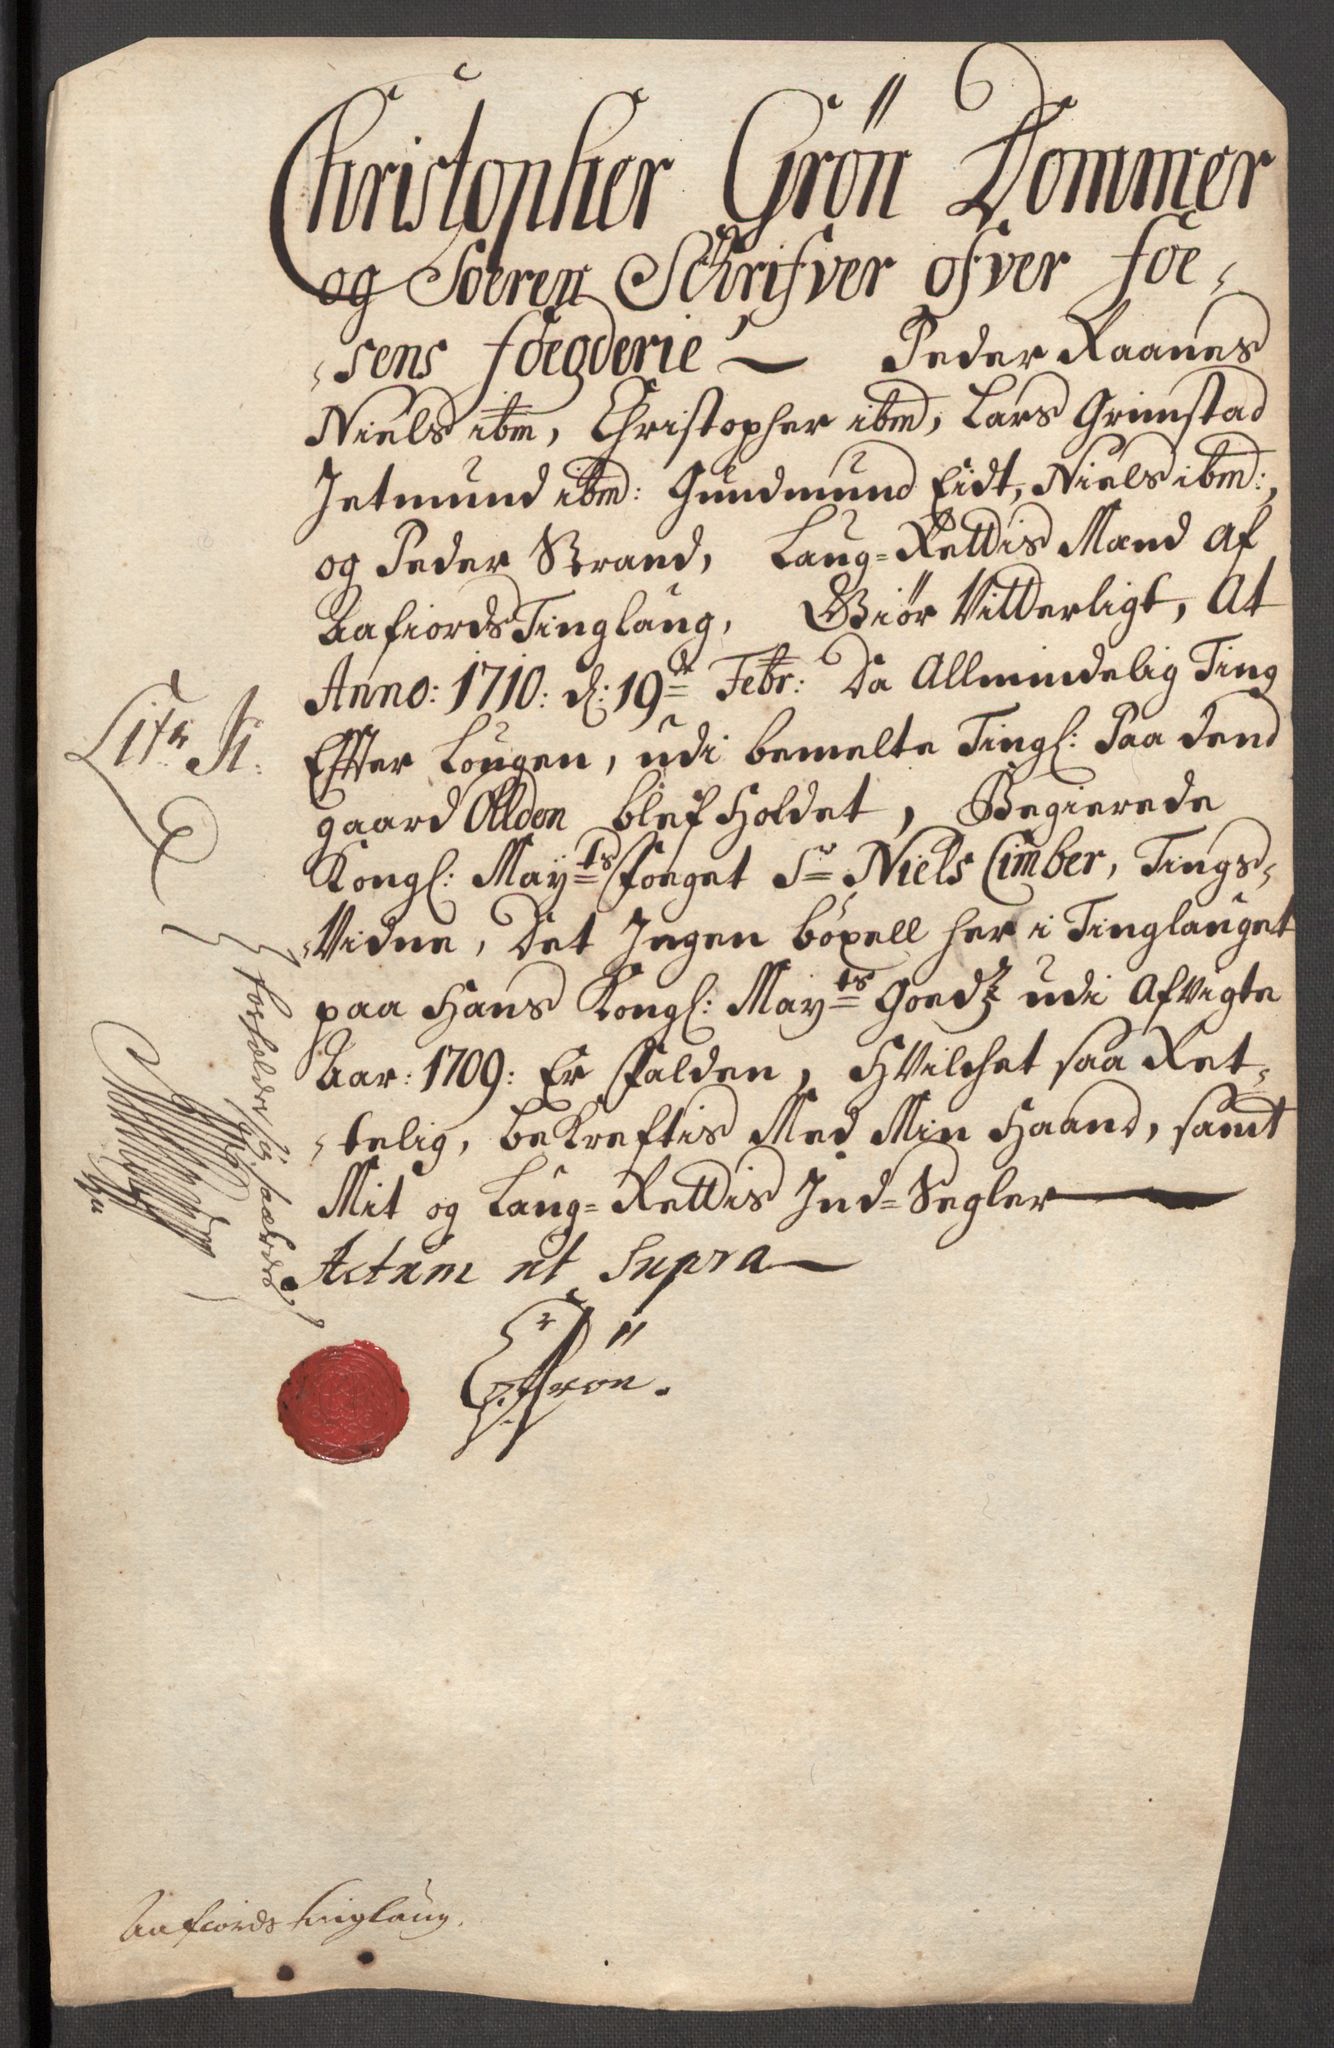 Christopher Grön Dommer
og Soeren Schrifver ofver foe-
-sens foegderie Peder Raanes
Niels ibm, Christopher ibm, Lars Grimstad
Jetmund ibm: Gundmund Eidt, Niels ibm:,
og Peder Strand, Laug-Rettis Mænd Af
AafiordsTinglaug, Giör Vitterligt, At
Anno: 1710: d: 19de Febr: Da Allmindelig Ting
Effter Lougen, udi bemelte Tingl: Paa dend
gaard Ollden blef Holdet, Begierede
Kongl: Mayts Foeget Sr Niels Cimber, Tings-
-Vidne, Det Ingen böxell her i Tinglauget
paa Hans Kongl: Mayts Goedz udi Afvigte
Aar: 1709: Er Falden, Hvilchet saa Ret-
-telig, bekreftis Med Min Haand, samt
Mit og Laug-Rettis Ind-Segler
Actum ut Supra
Grön.
Litr K:
Aafiords tinglaug.